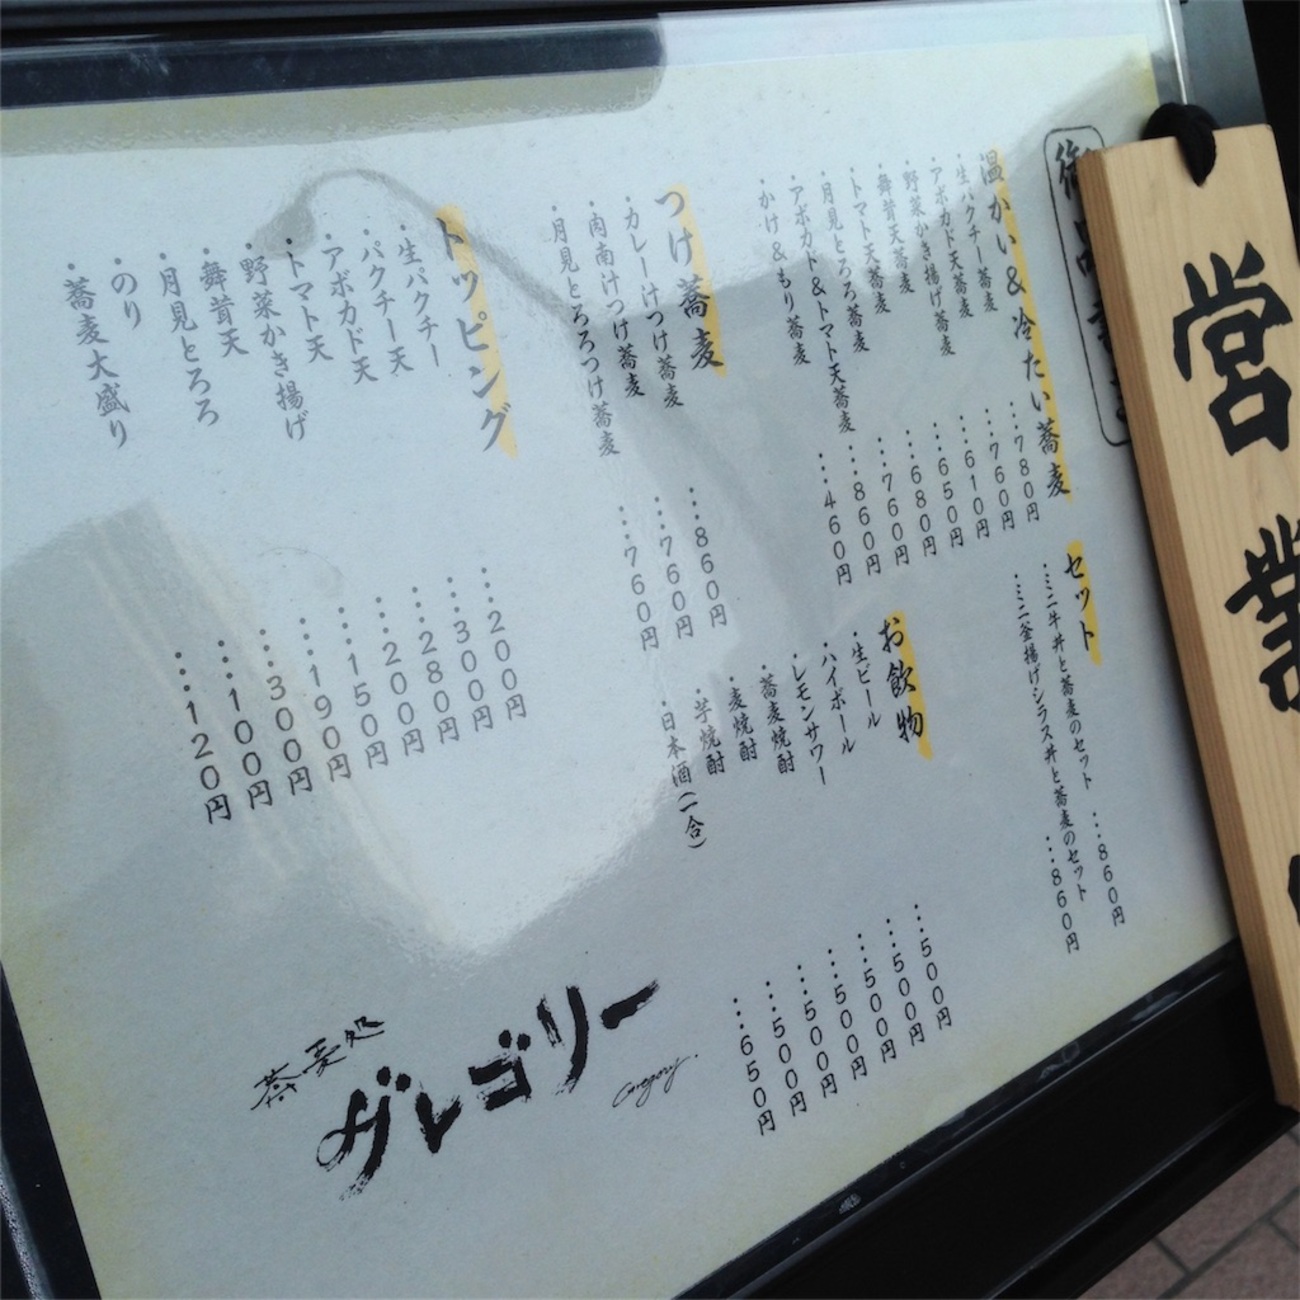 温かい&冷たい蕎麦
・生パクチー蕎麦 …780円
・アボカド天蕎麦 …760円
・野菜かき揚げ蕎麦 …610円
・舞茸天蕎麦 …650円
・トマト天蕎麦 …680円
・月見とろろ蕎麦 …760円
・アボカド&トマト天蕎麦 …860円
・かけ&もり蕎麦 …460円
つけ蕎麦
・カレーけつけ蕎麦 …860円
・肉南けつけ蕎麦 …760円
・月見とろろつけ蕎麦 …760円
トッピング
・生パクチー …200円
・パクチー天 …300円
・アボカド天 …280円
・トマト天 …200円
・野菜かき揚げ …150円
・舞茸天 …190円
・月見とろろ …300円
・のり …100円
・蕎麦大盛り …120円
セット
・ミニ牛丼と蕎麦のセット …860円
・ミニ釜揚げシラス丼と蕎麦のセット …860円
お飲物
・生ビール …500円
・ハイボール …500円
・レモンサワー …500円
・蕎麦焼酎 …500円
・麦焼酎 …500円
・芋焼酎 …500円
・日本酒(一合) …650円
蕎麦処
グレゴリー
Gregory.
営業